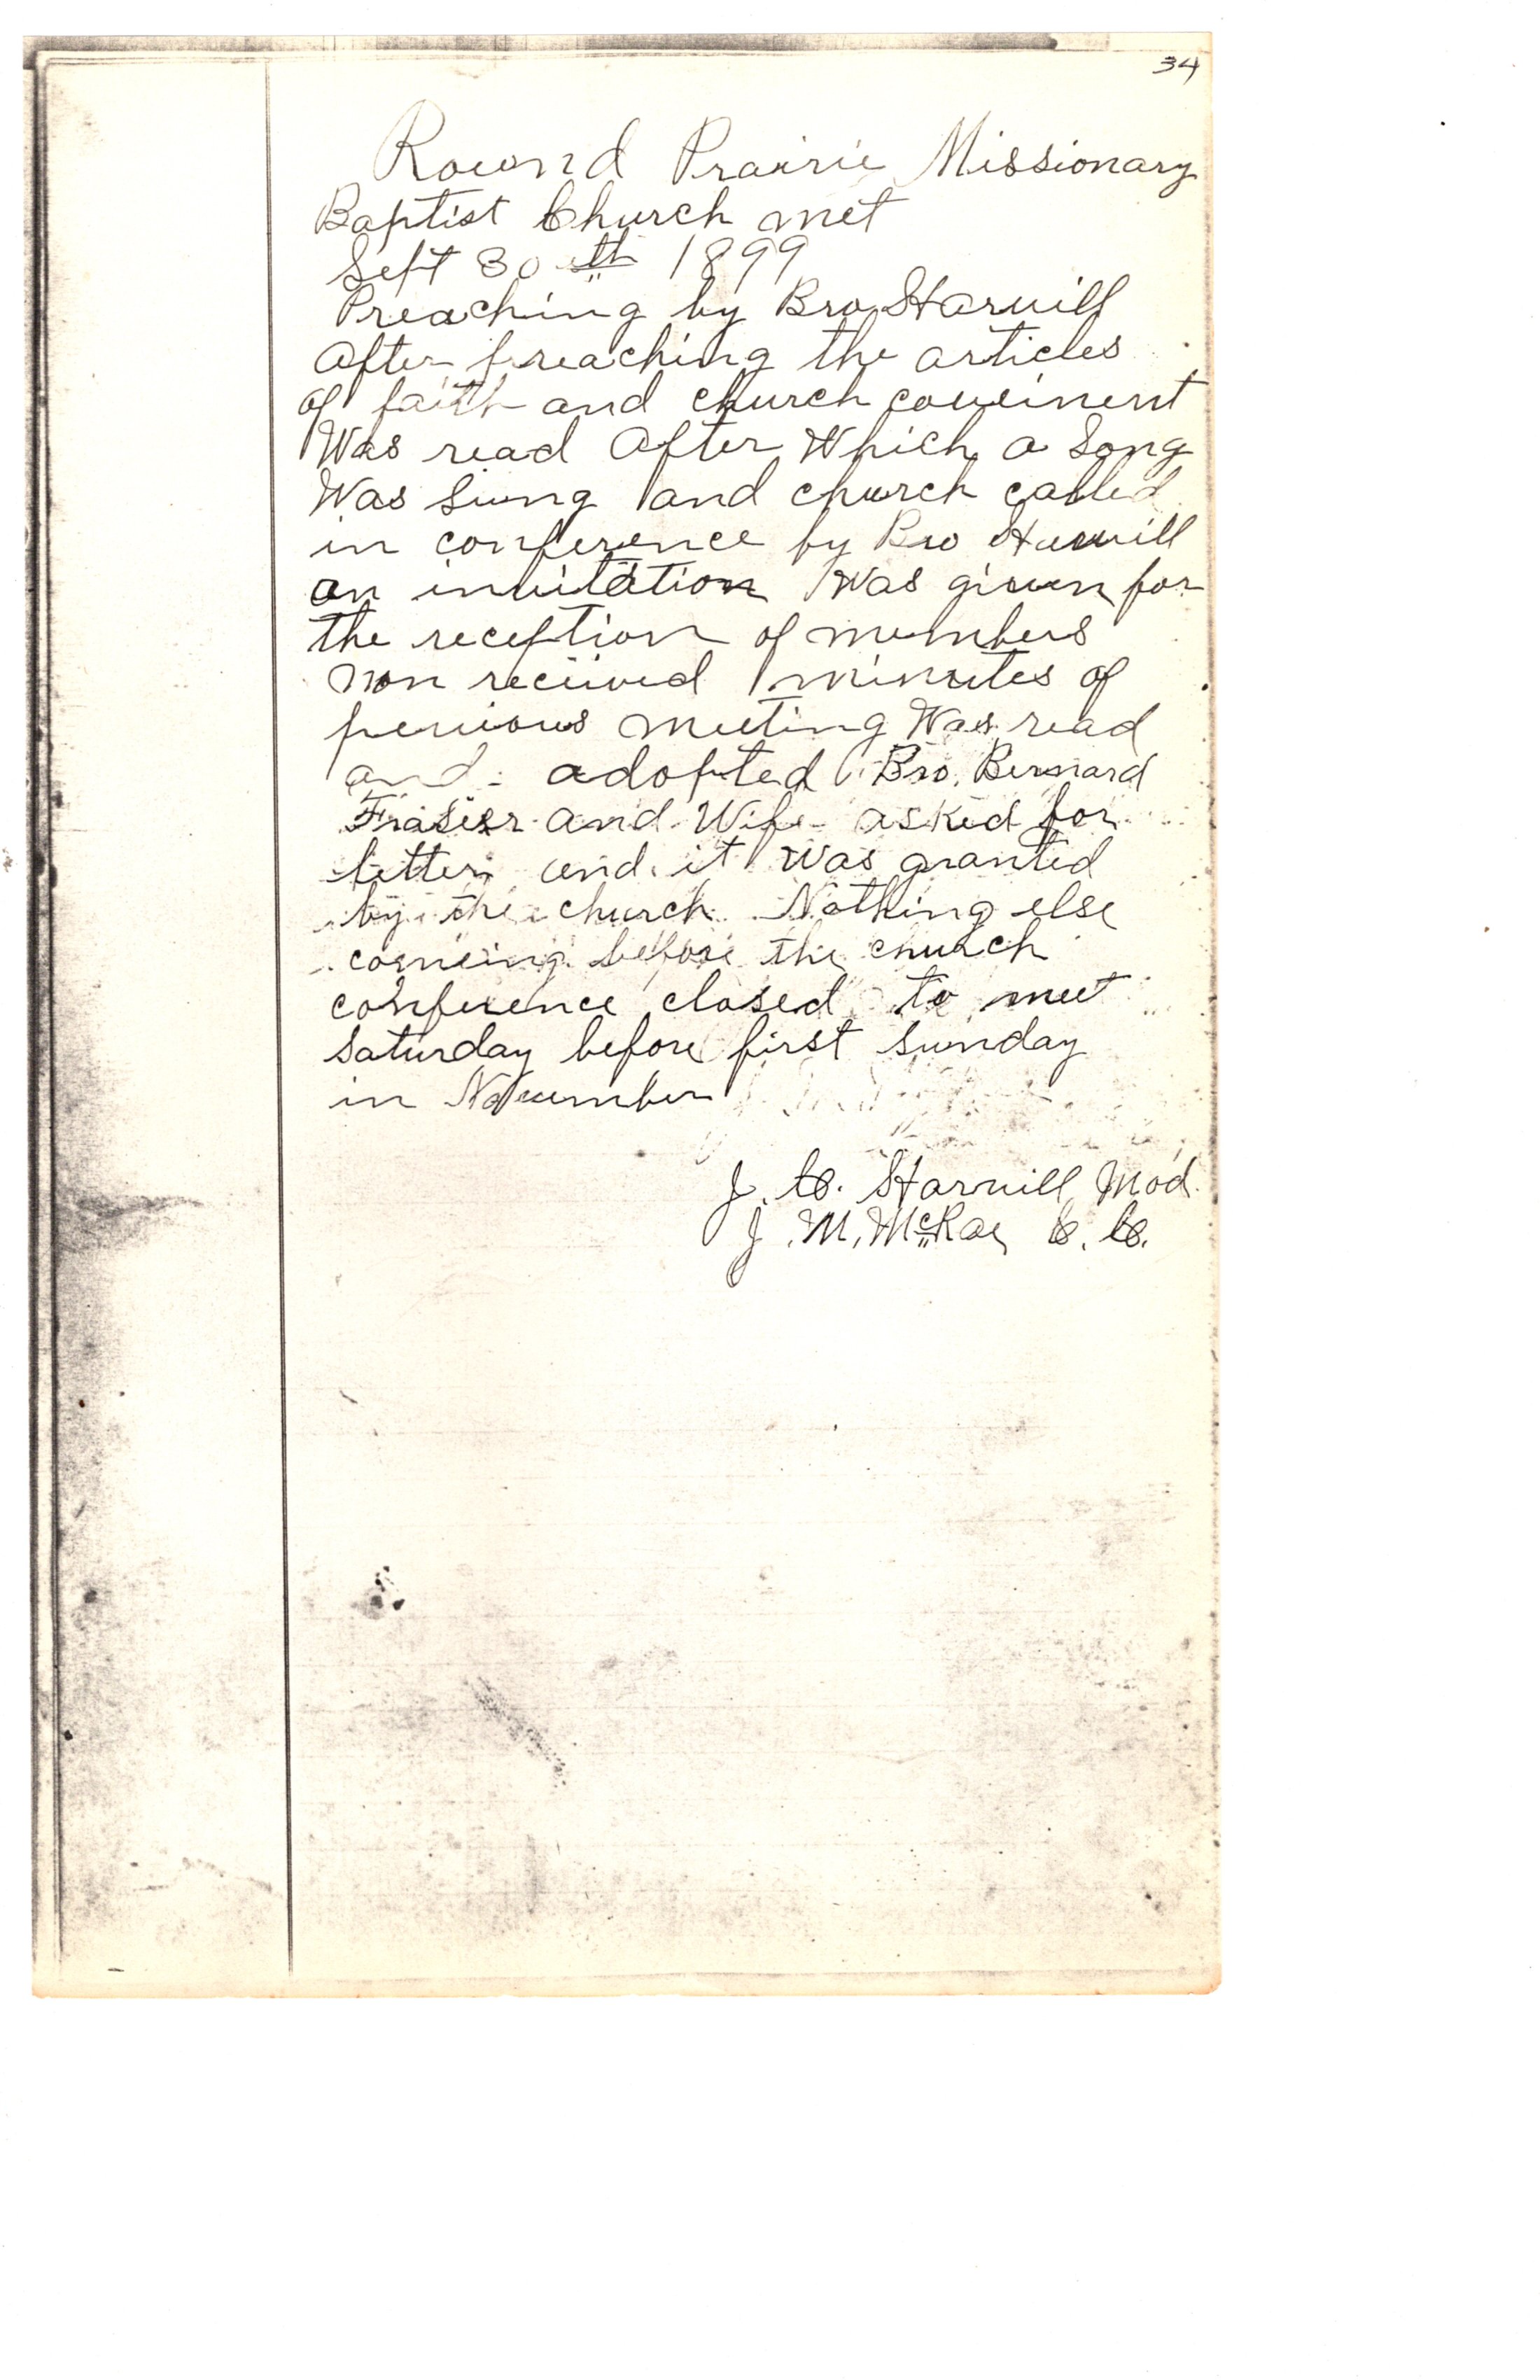 34
Round Prairie Missionary
Baptist Church met
Sept 30th 1899
Preaching by Bro Starvill
After preaching the articles
of faith and church coveinent
Was read After Which a Song
Was Sung and church called
in conference by Bro Starvill
an invitation Was given for
the reception of members
non received minutes of
pervious meeting Was read
and adopted Bro. Bernard
Frasier and Wife asked for
letters and it Was granted
by the church Nothing else
comeing before the church
conference closed to meet
Saturday before first Sunday
in November
J. C. Starvill, Mod.
J. M. McRae C. C.